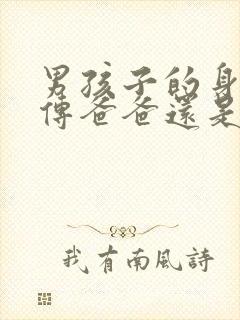 男孩子的身
傳爸爸還是
我有南風詩